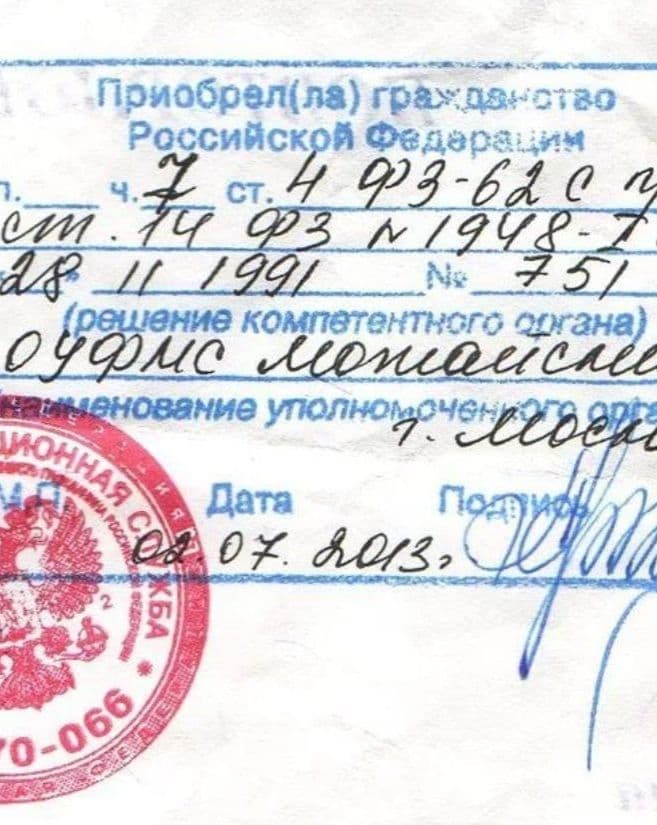 Приобрел(ла) гражданство
Российской Федерации
п. ч. 7 ст. 4 ФЗ-62 с у
ст. 14 ФЗ N 1948-I
28 11 1991 № 751
(решение компетентного органа)
ОУФМС Можайск
наименование уполномоченного орга
г. Моск
М.П. Дата Подпись
02.07.2013г
ЦИОННАЯ СЛУЖБА *
70-066